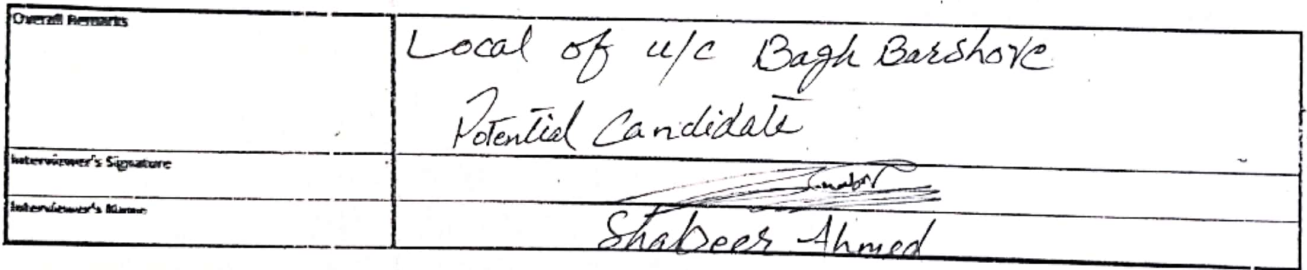 Overall Remarks
Local of u/c Bagh Barshore
Potential Candidate
Interviewer's Signature
Interviewer's Name
Shabeer Ahmed